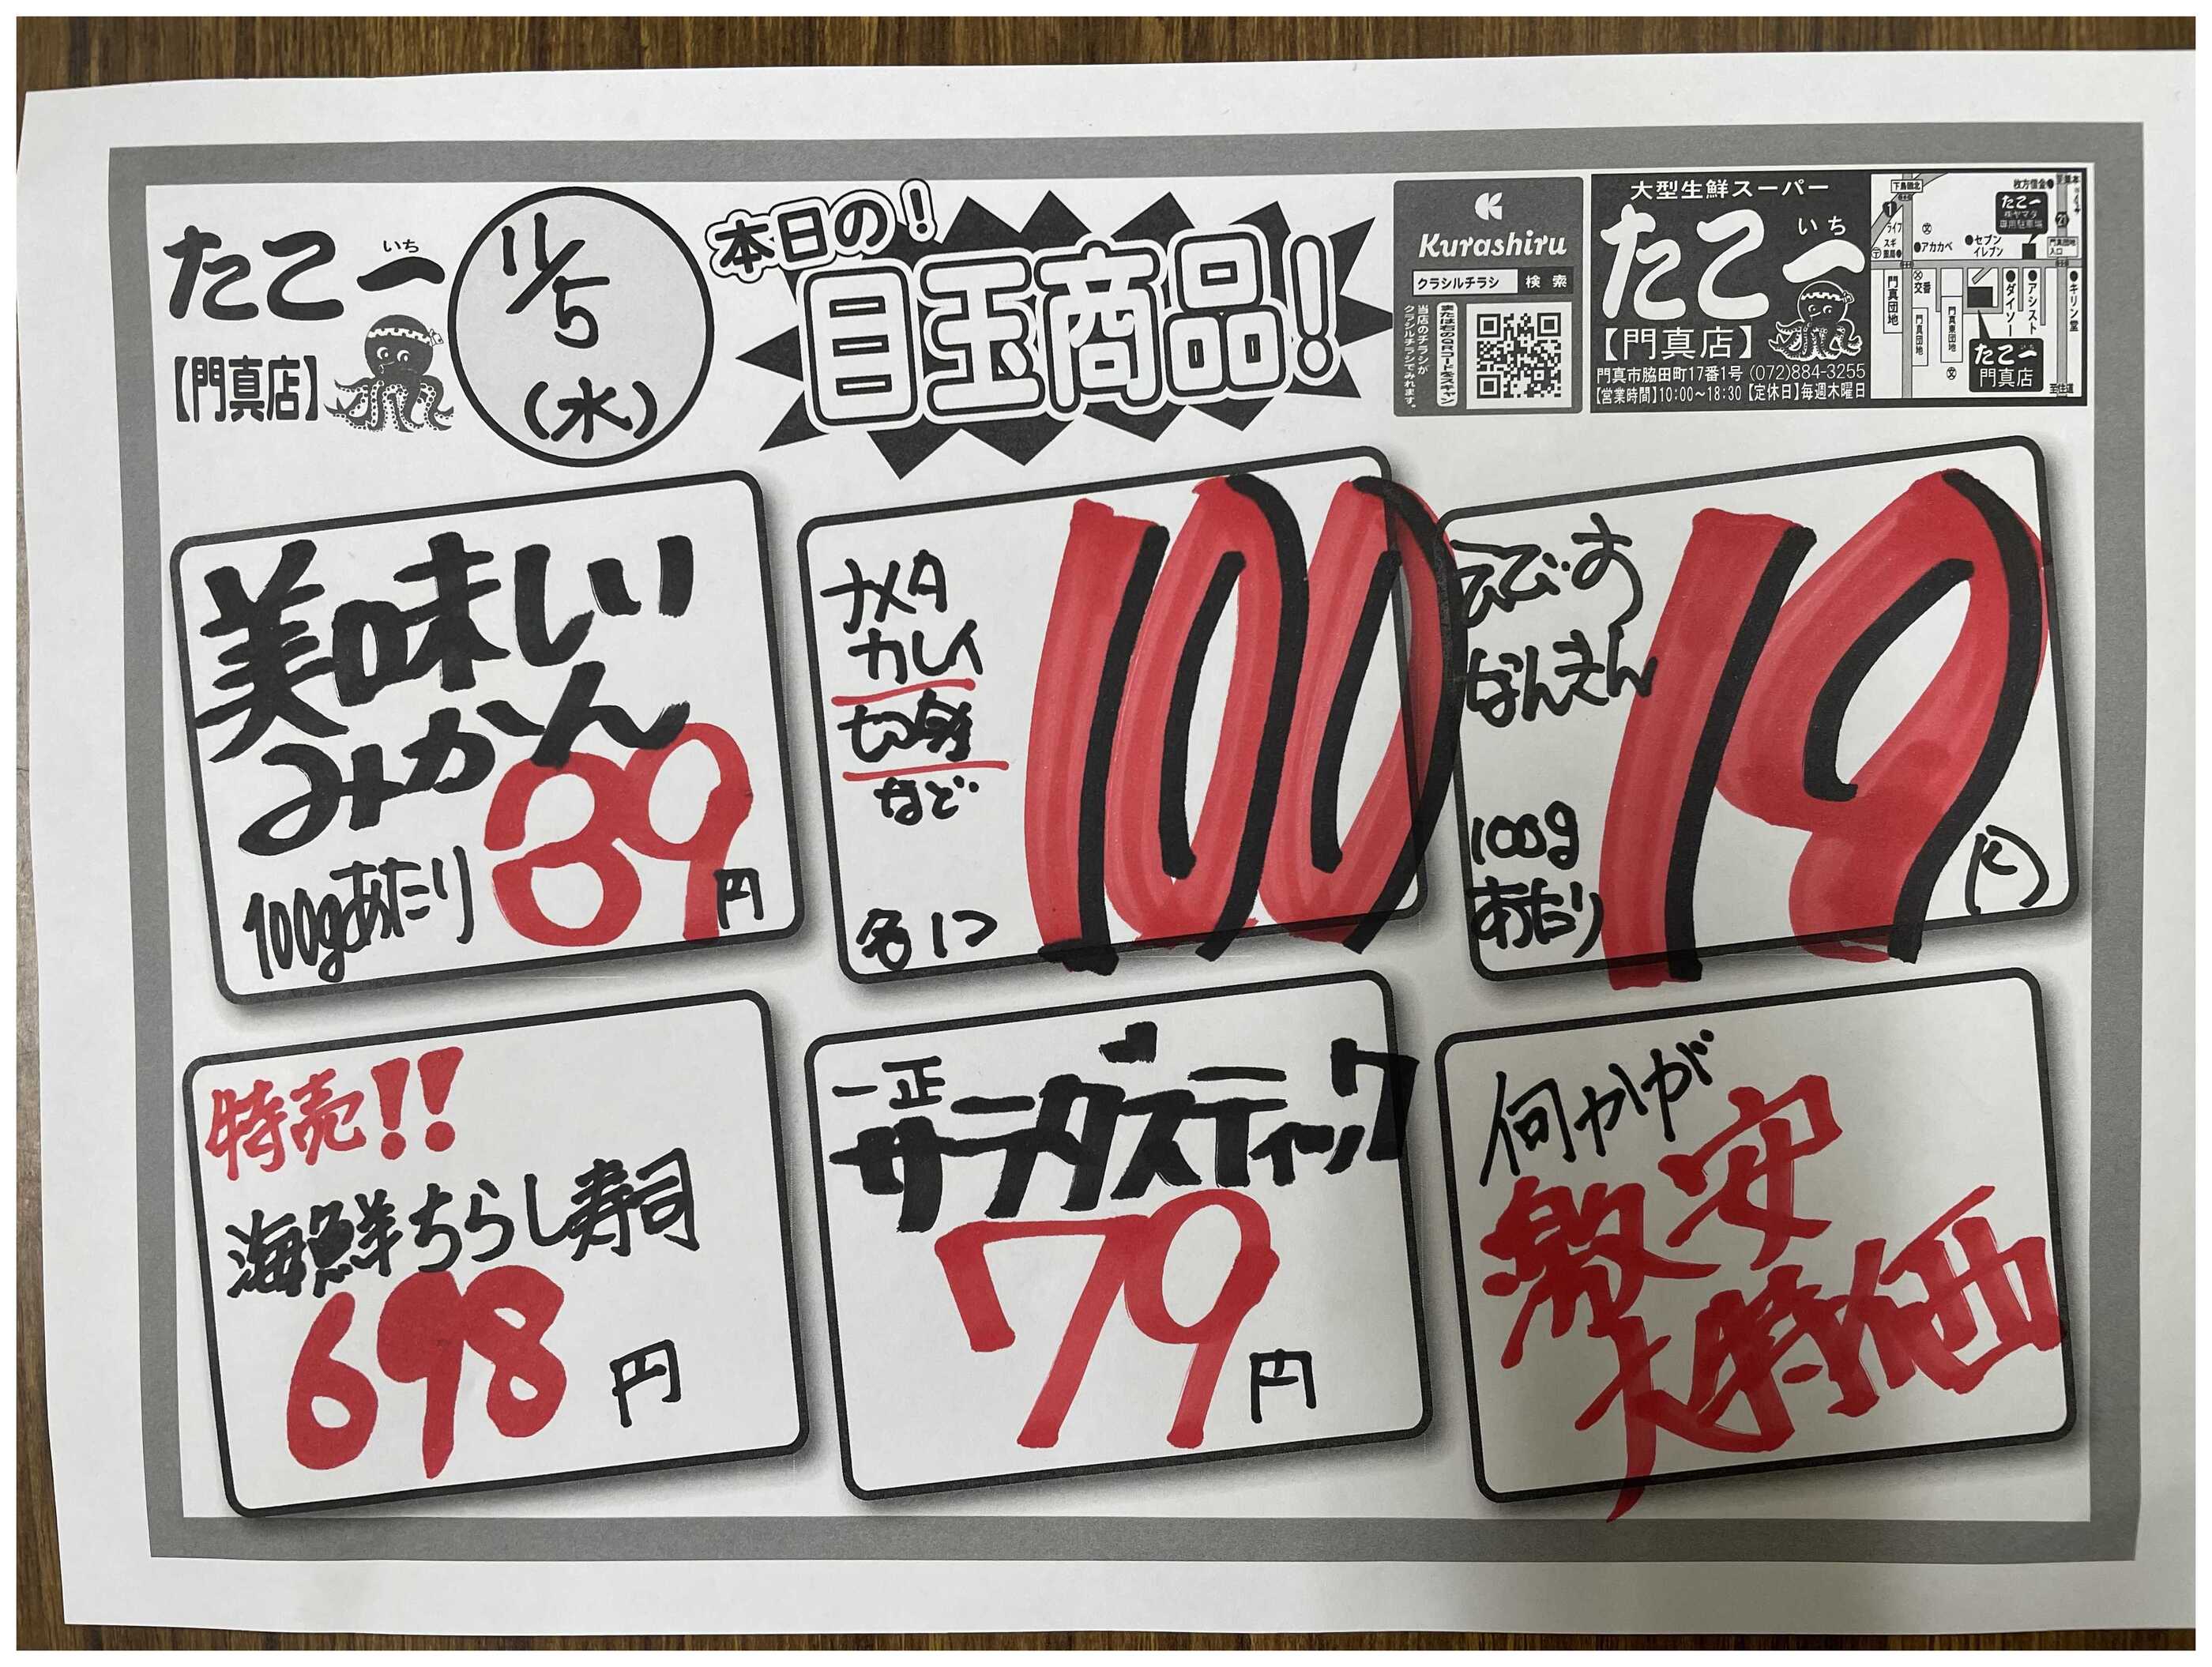 たこ一
いち
【門真店】
11/5
(水)
本日の!
目玉商品!
Kurashiru
クラシルチラシ 検索
当店のチラシが
クラシルチラシでみれます。
または右のQRコードをスキャン
大型生鮮スーパー
たこ一
いち
【門真店】
門真市脇田町17番1号 (072)884-3255
【営業時間】10:00～18:30 【定休日】毎週木曜日
下島頭北
枚方信金
たこ一
専用駐車場
ライフ
アカカベ
セブン
イレブン
門真団地
入口
交番
門真団地
門真団地
ダイソー
アシスト
キリン堂
たこ一
門真店
美味しい
みかん
100gあたり
89円
ナメタ
カレイ
切身
など
各1コ
100
えびす
なんきん
100g
あたり
19
円
特売!!
海鮮ちらし寿司
698円
一正
サラダスティック
79円
何かが
激安
大特価